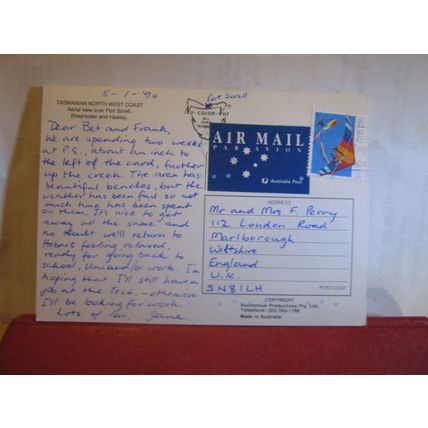 5-1-94
Port Sorell
TASMANIAN NORTH WEST COAST
Aerial view over Port Sorell,
Shearwater and Hawley.
NU-COLOR-VUE
Dear Bet and Frank,
We are spending two weeks
at P.S., about an inch to
the left of the card, further
up the creek. The area has
beautiful beaches, but the
weather has been foul so not
much time has been spent
on them. It's nice to get
away all the same and
no doubt we'll return to
Hobart feeling relaxed,
ready for going back to
school, Uni and/or work. I'm
hoping that I'll still have a
job at the Tech. - otherwise
I'll be looking for work.
Lots of love, Jane
AIR MAIL
PAR AVION
Australia Post
ADDRESS
Mr and Mrs F. Perry
112 London Road
Marlborough
Wiltshire
England
U.K.
SN8 1LH
POSTCODE
COPYRIGHT
Nucolorvue Productions Pty. Ltd.
Made in Australia